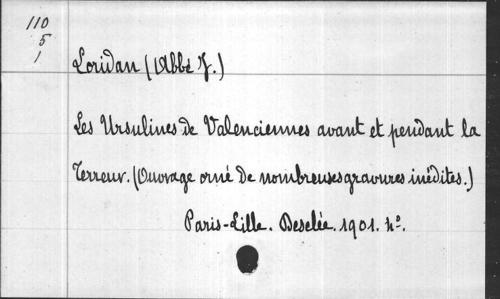 110
5
1
Loridan (Abbé J.)
Les Ursulines de Valenciennes avant et pendant la
Terreur. (Ouvrage orné de nombreuses gravures inédites.)
Paris-Lille. Desclée. 1901. 4°.